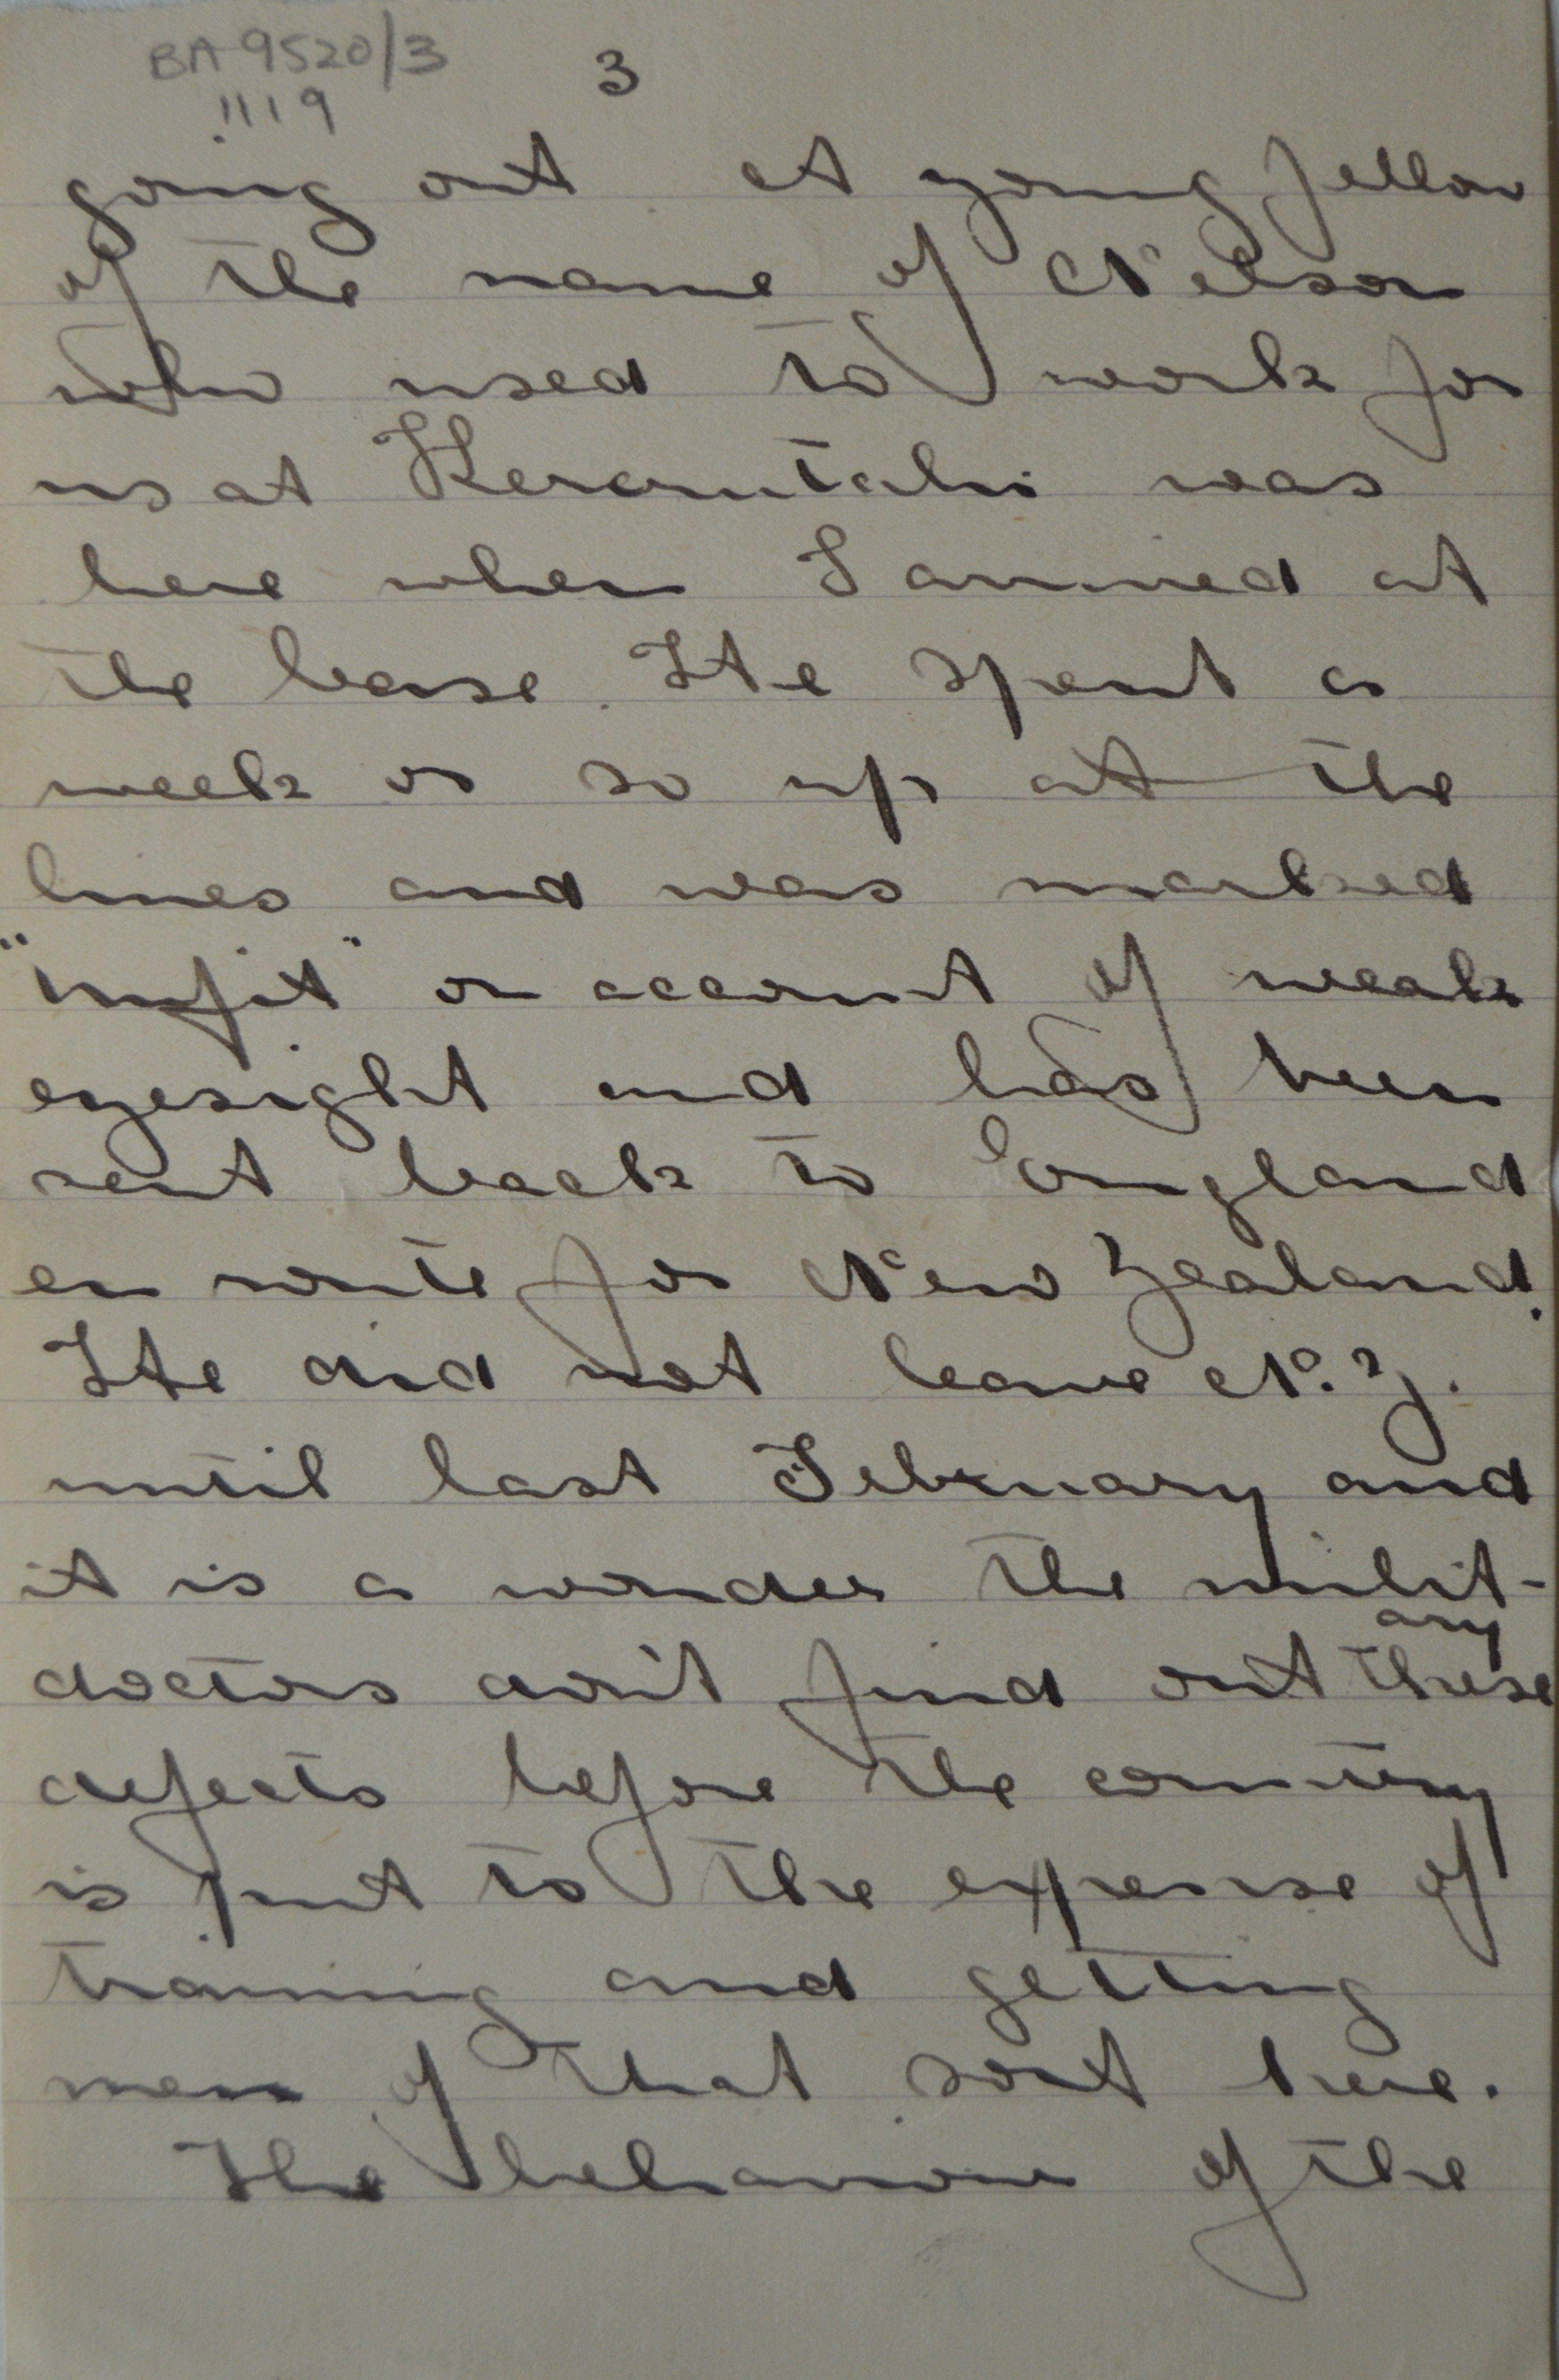 BA 9520/3
1119
3
going out A young fellow
of the name of Nelson
who used to work for
us at Kerautahi was
here when I arrived at
the base. He spent a
week or so up at the
lines and was marked
"unfit" on account of weak
eyesight and has been
sent back to England
en route for New Zealand.
He did not leave N.Z.
until last February and
it is a wonder the milit-
ary
doctors don't find out these
defects before the country
is put to the expense of
training and getting
men of that sort here.
The behaviour of the